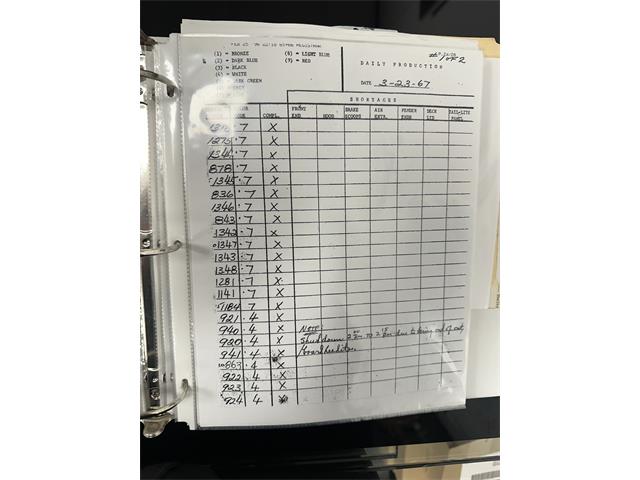 (1) = BRONZE (8) = LIGHT BLUE
(2) = DARK BLUE (9) = RED
(3) = BLACK
(4) = WHITE
DARK GREEN
DAILY PRODUCTION
OF 2
DATE 3-23-67
SHORTAGES
COMPL. FRONT END HOOD BRAKE SCOOPS AIR EXTR. FENDER ENDS DECK LID TAIL-LITE PANEL
7 X
1275 7 X
1344 7 X
878 7 X
1345 7 X
836 7 X
1346 7 X
843 7 X
1342 7 X
1347 7 X
1343 7 X
1348 7 X
1281 7 X
1141 7 X
1184 7 X
921 4 X
940 4 X NOTE:
920 4 X Shutdown to due to being out of
941 4 X
863 4 X
922 4 X
923 4 X
924 4 X